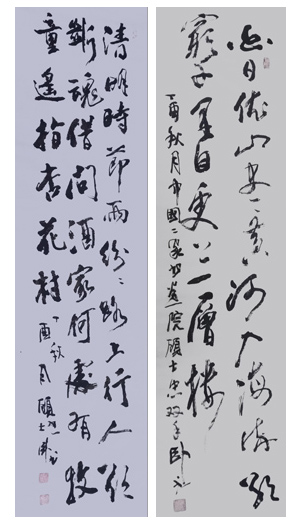 白日依山尽黄河入海流欲
窮千里目更上一層樓
丁酉秋月中國家书画院碩士忠双手
清明時節雨紛〻路上行人欲
斷魂借問酒家何處有牧
童遙指杏花村
丁酉秋月碩士